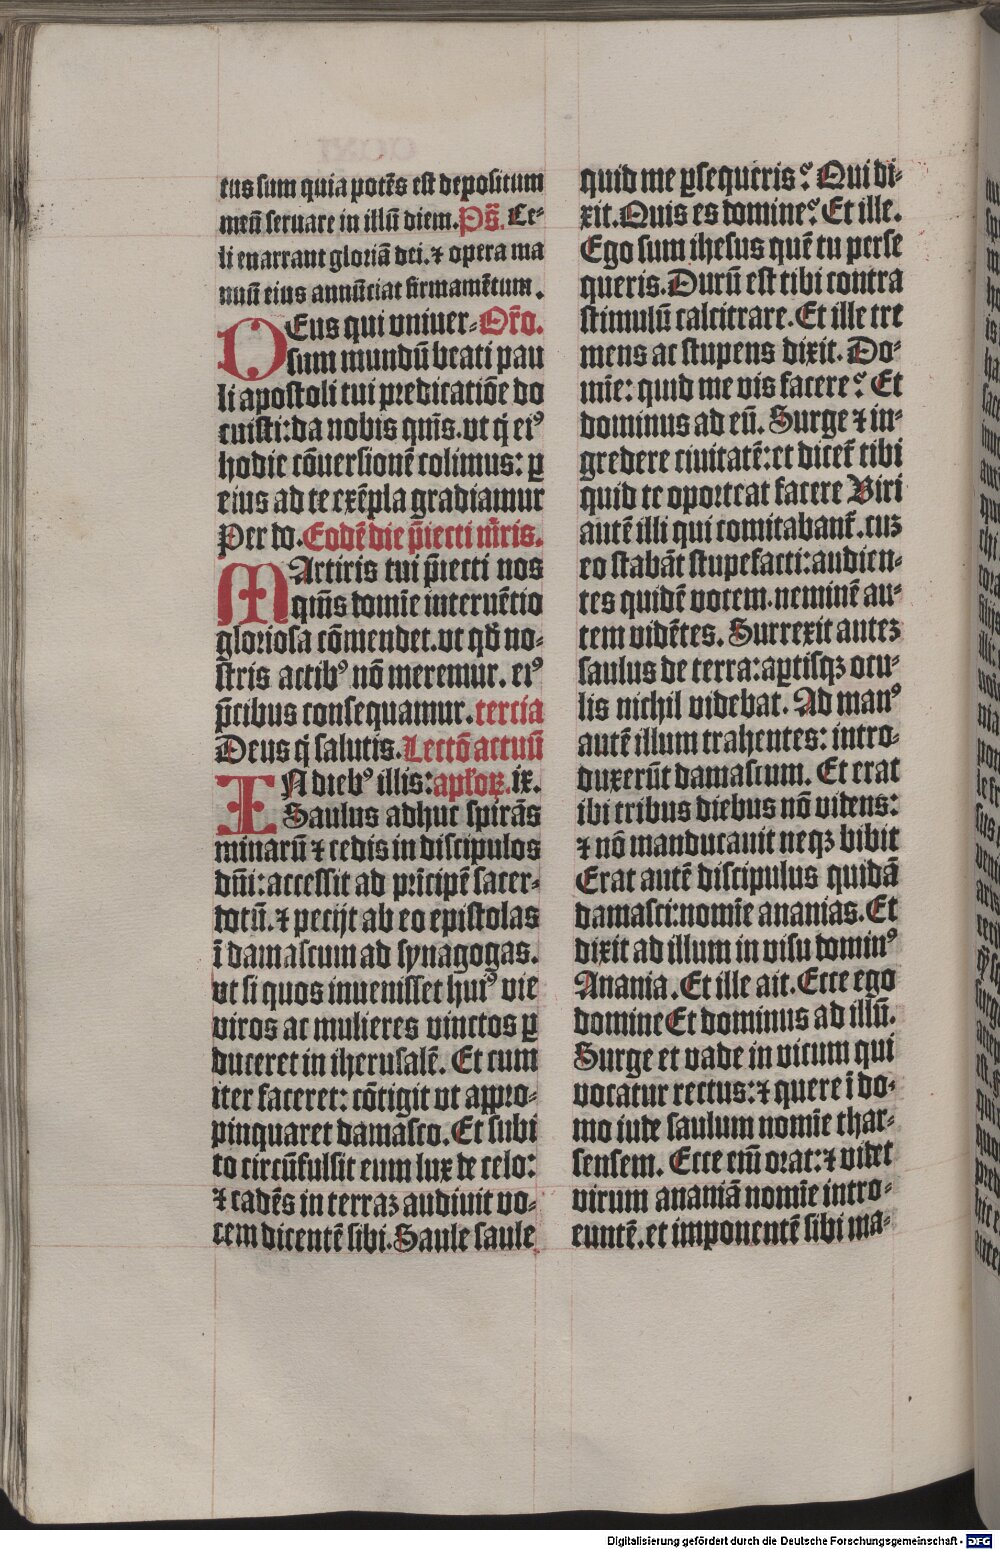 tus sum quia potēs est depositum
meū seruare in illū diem. Ps̄. Ce-
li enarrant gloriā dei. ⁊ opera ma
nuū eius annūciat firmamētum.
DEus qui vniuer- Or̄o.
sum mundū beati pau
li apostoli tui predicatiōe do
cuisti: da nobis qm̄s. vt q̇ eiꝰ
hodie cōuersionē colimus: ꝑ
eius ad te exēpla gradiamur
Per do. Eodē die p̄iecti mr̄is.
MArtiris tui p̄iecti nos
qm̄s domīe interuētio
gloriosa cōmendet. vt qd̄ no-
stris actibꝰ nō meremur. eiꝰ
p̄cibus consequamur. tercia
Deus q̇ salutis. Lectō actuū
IN diebꝰ illis: apl'oꝝ. ix.
Saulus adhuc spirās
minarū ⁊ cedis in discipulos
dn̄i: accessit ad prīcipē sacer-
dotū. ⁊ pecijt ab eo epistolas
ī damascum ad synagogas.
vt si quos inuenisset huiꝰ vie
viros ac mulieres vinctos ꝑ
duceret in iherusalē. Et cum
iter faceret: cōtigit vt appro-
pinquaret damasco. Et subi
to circūfulsit eum lux de celo:
⁊ cadēs in terraꝫ audiuit vo-
cem dicentē sibi. Saule saule
quid me ꝑsequeris? Qui di-
xit. Quis es domine? Et ille.
Ego sum ihesus quē tu perse
queris. Durū est tibi contra
stimulū calcitrare. Et ille tre
mens ac stupens dixit. Do-
mīe: quid me vis facere? Et
dominus ad eū. Surge ⁊ in-
gredere ciuitatē: et dicet̄ tibi
quid te oporteat facere Viri
autē illi qui comitabant̄. cuꝫ
eo stabāt stupefacti: audien-
tes quidē vocem. neminē au-
tem vidētes. Surrexit auteꝫ
saulus de terra: aꝑtisqꝫ ocu-
lis nichil videbat. Ad manꝰ
autē illum trahentes: intro-
duxerūt damascum. Et erat
ibi tribus diebus nō videns:
⁊ nō manducauit neqꝫ bibit
Erat autē discipulus quidā
damasci: nomīe ananias. Et
dixit ad illum in visu dominꝰ
Anania. Et ille ait. Ecce ego
domine Et dominus ad illū.
Surge et vade in vicum qui
vocatur rectus: ⁊ quere ī do-
mo iude saulum nomīe thar-
sensem. Ecce em̄ orat: ⁊ videt
virum ananiā nomīe intro-
euntē. et imponentē sibi ma-
Digitalisierung gefördert durch die Deutsche Forschungsgemeinschaft - DFG